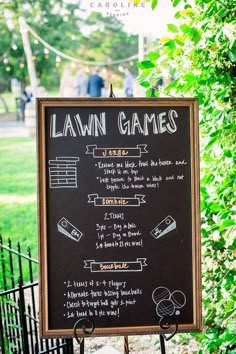 CAROLINE
LAWN GAMES
Jenga
• Remove one block from the tower and
stack it on top
• Last person to remove a block and not
topple the tower wins!
Cornhole
2 teams
3 pts - Bag in hole
1 pt - Bag on Board
1st team to 21 wins!
Bocce Ball
• 2 teams of 2-4 players
• Alternate turns tossing balls
• Closest ball gets a point
• 1st team to 13 wins!